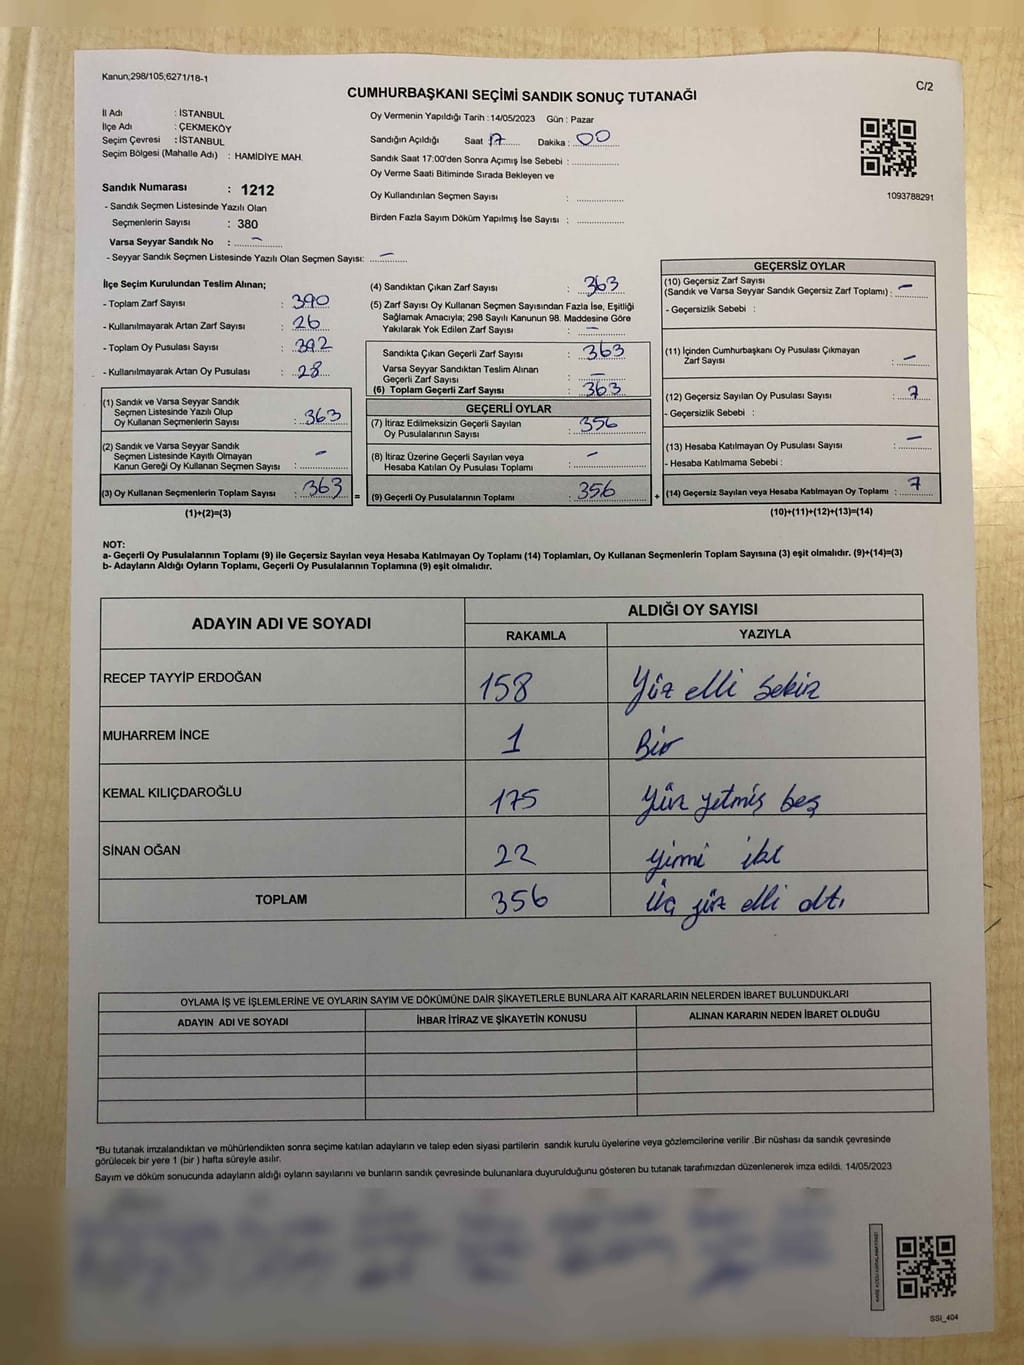 Kanun;298/105;6271/18-1
C/2
CUMHURBAŞKANI SEÇİMİ SANDIK SONUÇ TUTANAĞI
İl Adı : İSTANBUL
İlçe Adı : ÇEKMEKÖY
Seçim Çevresi : İSTANBUL
Seçim Bölgesi (Mahalle Adı) : HAMİDİYE MAH.
Sandık Numarası : 1212
- Sandık Seçmen Listesinde Yazılı Olan
Seçmenlerin Sayısı : 380
Varsa Seyyar Sandık No : –
- Seyyar Sandık Seçmen Listesinde Yazılı Olan Seçmen Sayısı: –
Oy Vermenin Yapıldığı Tarih :14/05/2023 Gün : Pazar
Sandığın Açıldığı Saat 17 Dakika : 00
Sandık Saat 17:00'den Sonra Açımış İse Sebebi :
Oy Verme Saati Bitiminde Sırada Bekleyen ve
Oy Kullandırılan Seçmen Sayısı :
Birden Fazla Sayım Döküm Yapılmış İse Sayısı :
1093788291
İlçe Seçim Kurulundan Teslim Alınan;
- Toplam Zarf Sayısı : 390
- Kullanılmayarak Artan Zarf Sayısı : 26
- Toplam Oy Pusulası Sayısı : 392
- Kullanılmayarak Artan Oy Pusulası : 28
(1) Sandık ve Varsa Seyyar Sandık
Seçmen Listesinde Yazılı Olup
Oy Kullanan Seçmenlerin Sayısı : 363
(2) Sandık ve Varsa Seyyar Sandık
Seçmen Listesinde Kayıtlı Olmayan
Kanun Gereği Oy Kullanan Seçmen Sayısı : –
(3) Oy Kullanan Seçmenlerin Toplam Sayısı : 363 =
(1)+(2)=(3)
(4) Sandıktan Çıkan Zarf Sayısı : 363
(5) Zarf Sayısı Oy Kullanan Seçmen Sayısından Fazla İse, Eşitliği
Sağlamak Amacıyla; 298 Sayılı Kanunun 98. Maddesine Göre
Yakılarak Yok Edilen Zarf Sayısı : –
Sandıkta Çıkan Geçerli Zarf Sayısı : 363
Varsa Seyyar Sandıktan Teslim Alınan
Geçerli Zarf Sayısı : –
(6) Toplam Geçerli Zarf Sayısı : 363
GEÇERLİ OYLAR
(7) İtiraz Edilmeksizin Geçerli Sayılan
Oy Pusulalarının Sayısı : 356
(8) İtiraz Üzerine Geçerli Sayılan veya
Hesaba Katılan Oy Pusulası Toplamı : –
(9) Geçerli Oy Pusulalarının Toplamı : 356 +
GEÇERSİZ OYLAR
(10) Geçersiz Zarf Sayısı
(Sandık ve Varsa Seyyar Sandık Geçersiz Zarf Toplamı) : –
- Geçersizlik Sebebi :
(11) İçinden Cumhurbaşkanı Oy Pusulası Çıkmayan
Zarf Sayısı : –
(12) Geçersiz Sayılan Oy Pusulası Sayısı : 7
- Geçersizlik Sebebi :
(13) Hesaba Katılmayan Oy Pusulası Sayısı : –
- Hesaba Katılmama Sebebi :
(14) Geçersiz Sayılan veya Hesaba Katılmayan Oy Toplamı : 7
(10)+(11)+(12)+(13)=(14)
NOT:
a- Geçerli Oy Pusulalarının Toplamı (9) ile Geçersiz Sayılan veya Hesaba Katılmayan Oy Toplamı (14) Toplamları, Oy Kullanan Seçmenlerin Toplam Sayısına (3) eşit olmalıdır. (9)+(14)=(3)
b- Adayların Aldığı Oyların Toplamı, Geçerli Oy Pusulalarının Toplamına (9) eşit olmalıdır.
ADAYIN ADI VE SOYADI
ALDIĞI OY SAYISI
RAKAMLA YAZIYLA
RECEP TAYYİP ERDOĞAN 158 Yüz elli sekiz
MUHARREM İNCE 1 Bir
KEMAL KILIÇDAROĞLU 175 Yüz yetmiş beş
SİNAN OĞAN 22 yirmi iki
TOPLAM 356 üç yüz elli altı
OYLAMA İŞ VE İŞLEMLERİNE VE OYLARIN SAYIM VE DÖKÜMÜNE DAİR ŞİKAYETLERLE BUNLARA AİT KARARLARIN NELERDEN İBARET BULUNDUKLARI
ADAYIN ADI VE SOYADI İHBAR İTİRAZ VE ŞİKAYETİN KONUSU ALINAN KARARIN NEDEN İBARET OLDUĞU
*Bu tutanak imzalandıktan ve mühürlendikten sonra seçime katılan adayların ve talep eden siyasi partilerin sandık kurulu üyelerine veya gözlemcilerine verilir .Bir nüshası da sandık çevresinde
görülecek bir yere 1 (bir ) hafta süreyle asılır.
Sayım ve döküm sonucunda adayların aldığı oyların sayılarını ve bunların sandık çevresinde bulunanlara duyurulduğunu gösteren bu tutanak tarafımızdan düzenlenerek imza edildi. 14/05/2023
SSI_404